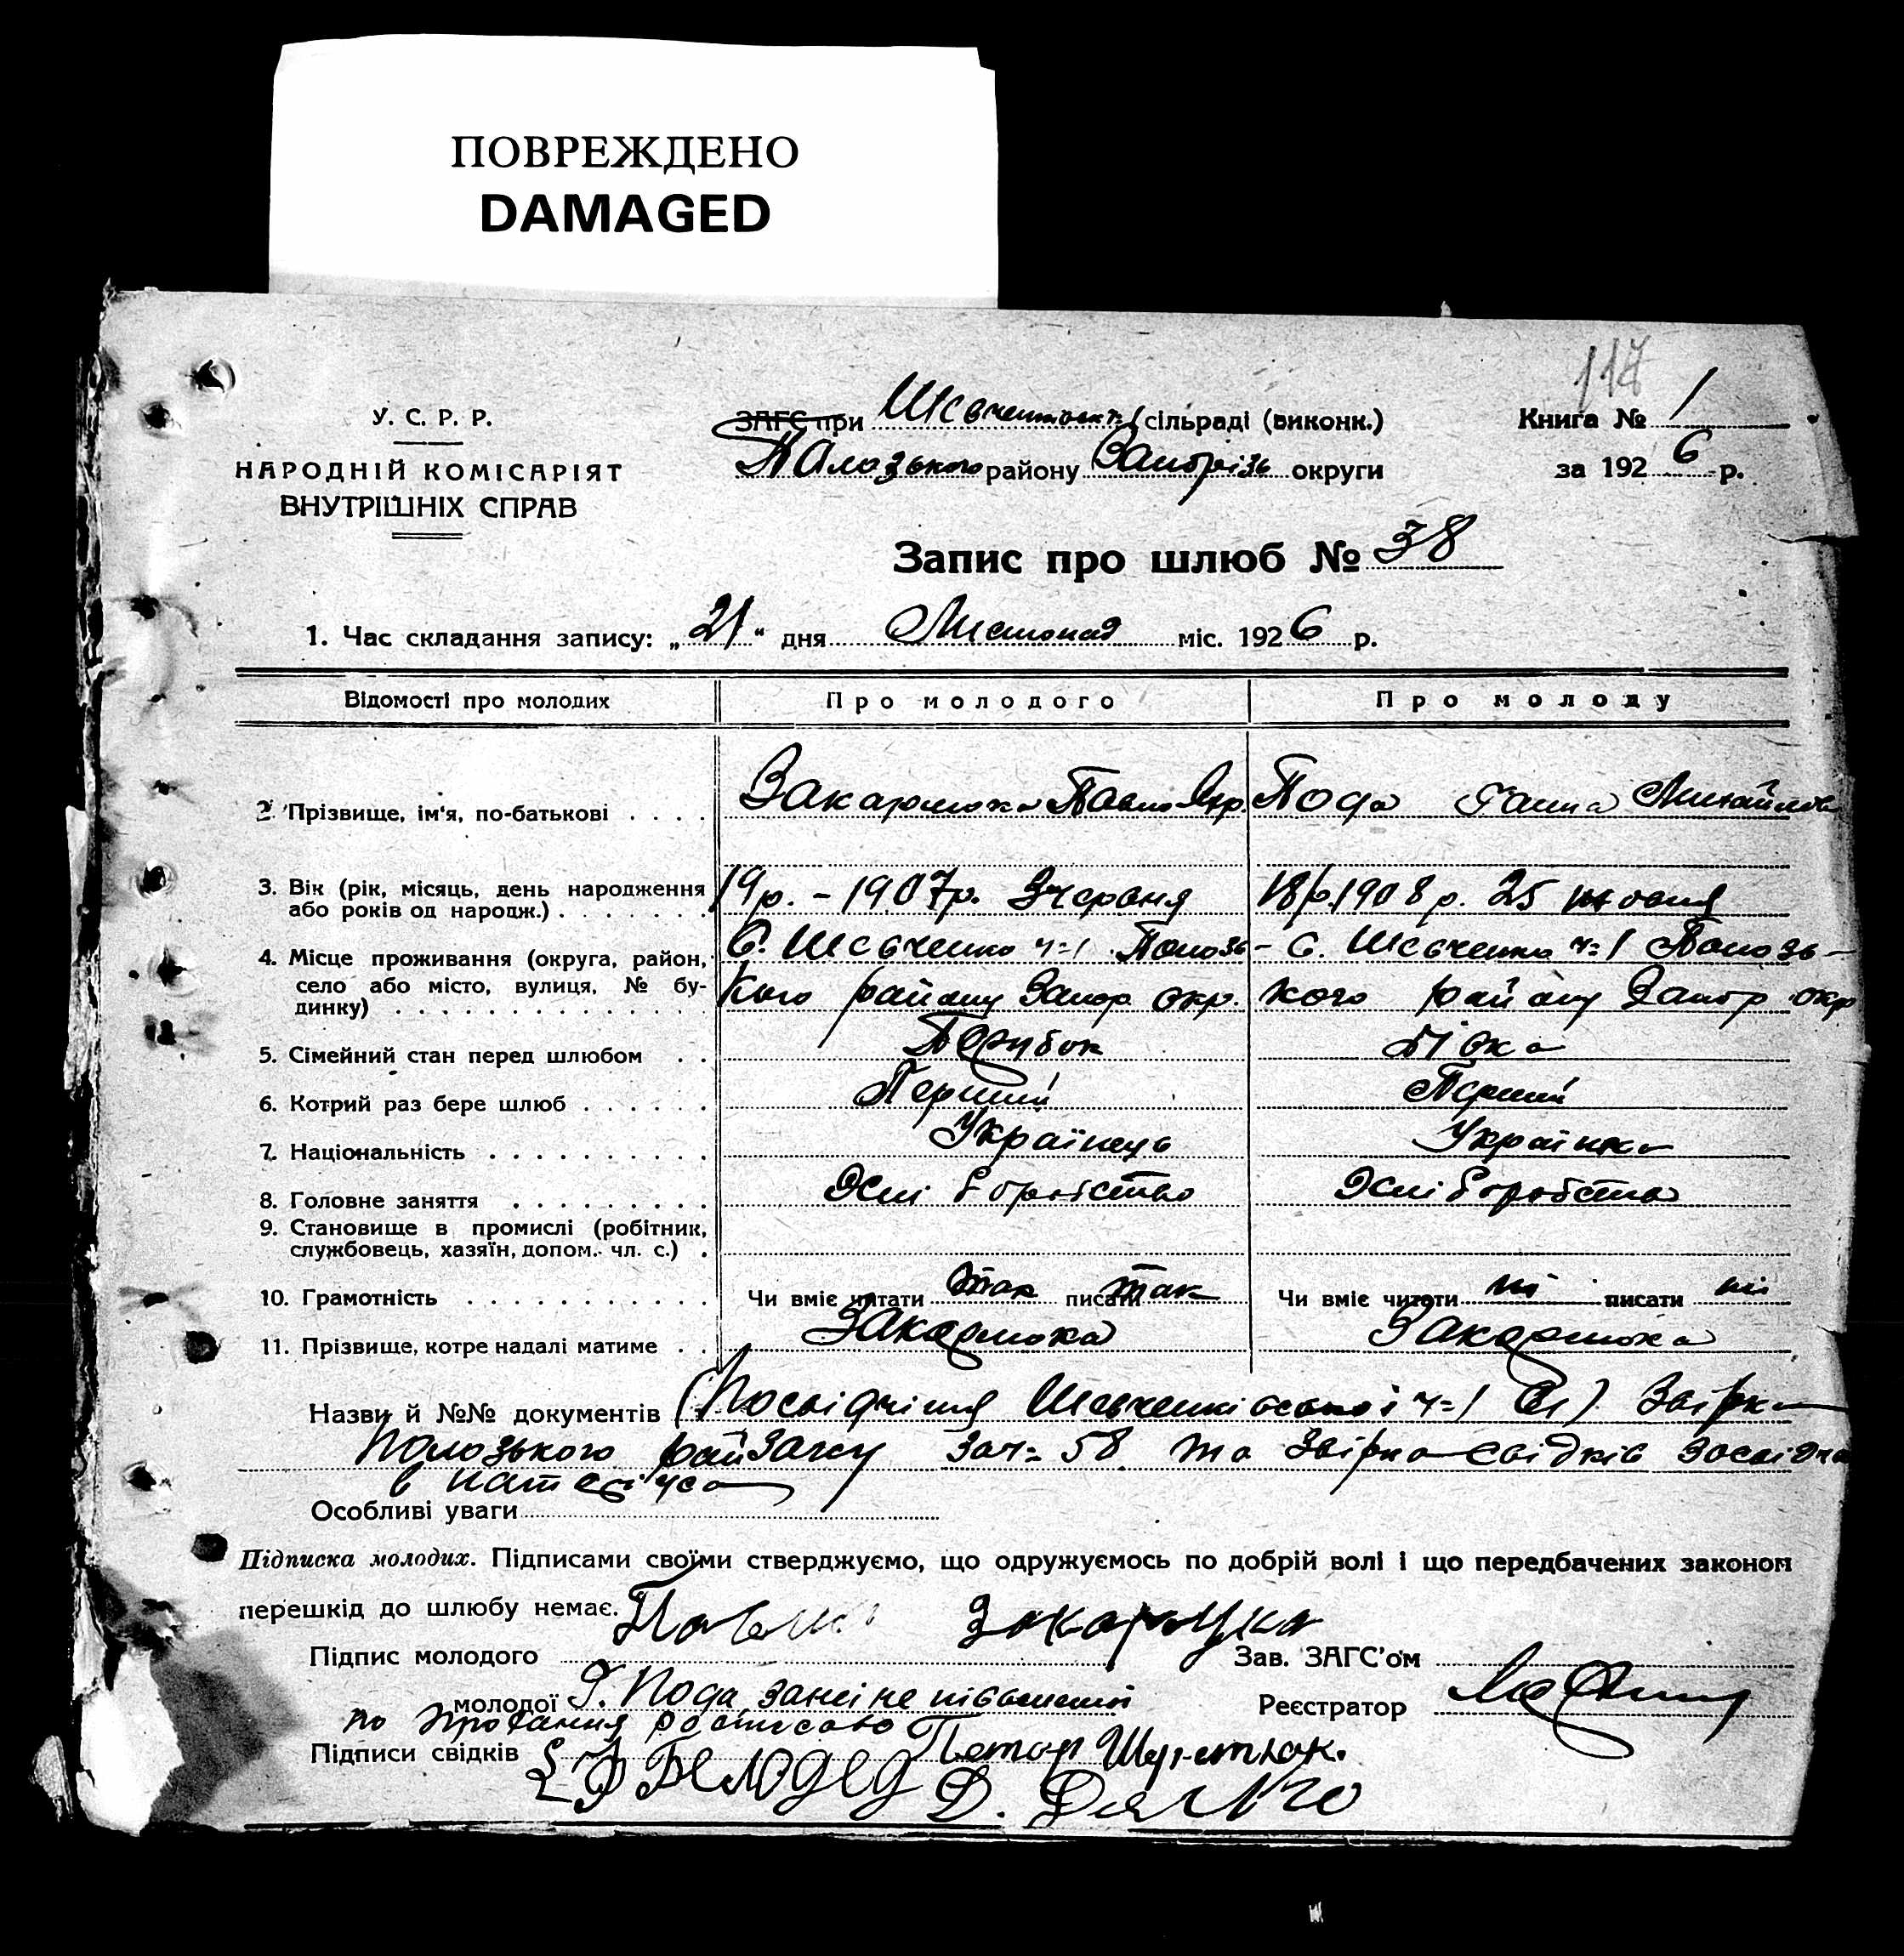 ПОВРЕЖДЕНО
DAMAGED
117
У. С. Р. Р.
НАРОДНІЙ КОМІСАРІЯТ
ВНУТРІШНІХ СПРАВ
ЗАГС при сільраді (виконк.)
Полозького району Запорізь округи
Книга № 1
за 1926 р.
Запис про шлюб № 38
1. Час складання запису: „21“ дня Листопад міс. 1926 р.
Відомості про молодих Про молодого Про молоду
2. Прізвище, ім‘я, по-батькові . . . . Павло Пода Ганна Михайлов
3. Вік (рік, місяць, день народження
або років од народж.) . . . . . . . 19р. – 1907р. 3 червня 18р. 1908 р. 25 жовтня
4. Місце проживання (округа, район, С. Шевченко ч=1 Полозь- С. Шевченко ч=1 Полозь-
село або місто, вулиця, № бу-
динку) . . . . . . . . . . . . . . кого району Запор. окр. кого району Запор окр
5. Сімейний стан перед шлюбом . . Парубок Дівка
6. Котрий раз бере шлюб . . . . . . Перший Перший
7. Національність . . . . . . . . . . Українець Українка
8. Головне заняття . . . . . . . . . Хліборобство Хліборобство
9. Становище в промислі (робітник,
службовець, хазяїн, допом. чл. с.) .
10. Грамотність . . . . . . . . . . . Чи вміє читати так писати так Чи вміє читати ні писати ні
11. Прізвище, котре надалі матиме . .
Назви й №№ документів Шевченківської ч=1
Полозького зач= 58 та свідків
в
Особливі уваги
Підписка молодих. Підписами своїми стверджуємо, що одружуємось по добрій волі і що передбачених законом
перешкід до шлюбу немає.
Підпис молодого Зав. ЗАГС’ом
молодої Г. Пода за неї не письменої Реєстратор
по
Підписи свідків Петор
Белодед
Д.